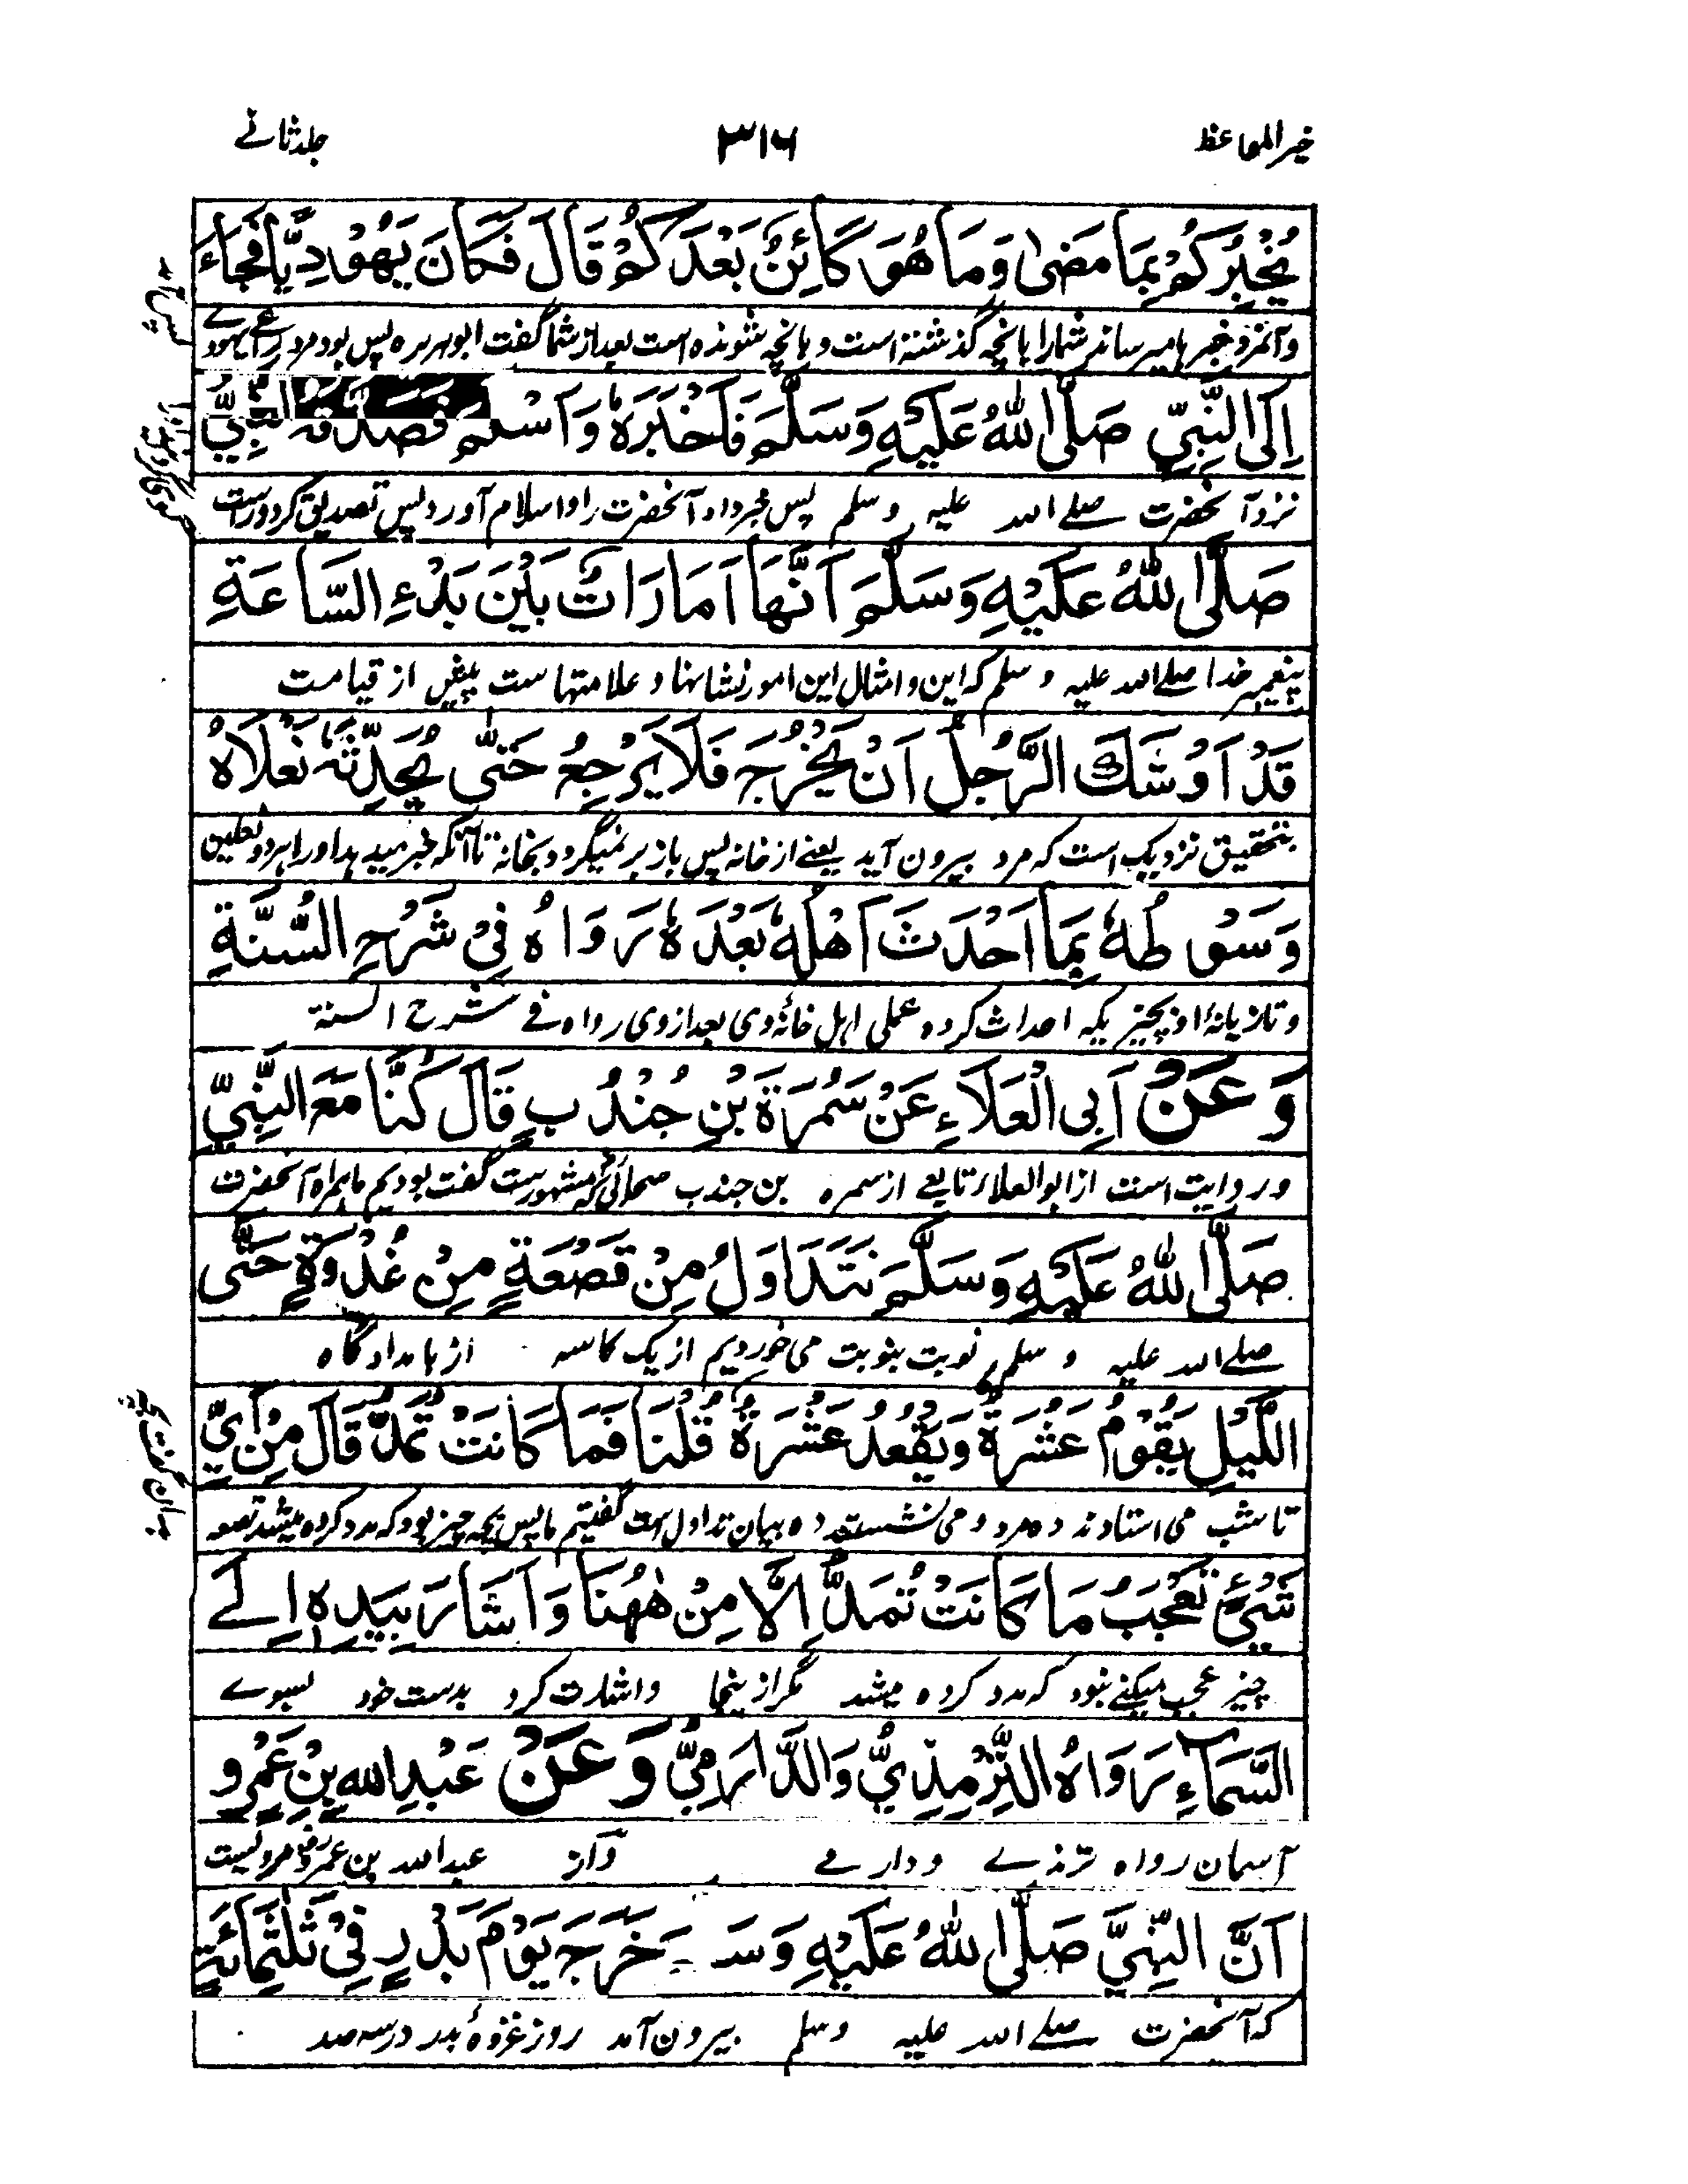 خیر المواعظ ۳۱۶ جلد ثانے
يُخْبِرُكُمْ بِمَا مَضٰى وَمَا هُوَ كَائِنٌ بَعْدَكُمْ قَالَ فَكَانَ يَهُوْدِيًّا فَجَاءَ
و آنمرد خبر ہا میرساند شمارا بانچہ گذشتہ است و بانچہ شوندہ است بعد از شما گفت ابوہریرہ پس بود مرد راعی یہود
اِلَى النَّبِيِّ صَلَّى اللهُ عَلَيْهِ وَسَلَّمَ فَاَخْبَرَهٗ وَاَسْلَمَ فَصَدَّقَهُ النَّبِيُّ
نزد آنحضرت صلے اللہ علیہ وسلم پس خبر داد آنحضرت را و اسلام آورد پس تصدیق کرد و راست
صَلَّى اللهُ عَلَيْهِ وَسَلَّمَ اَنَّهَا اَمَارَاتٌ بَيْنَ بَدْءِ السَّاعَةِ
پیغمبر خدا صلے اللہ علیہ وسلم کہ این و امثال این امور نشانہا و علامتہاست پیش از قیامت
قَدْ اَوْشَكَ الرَّجُلُ اَنْ يَخْرُجَ فَلَا يَرْجِعُ حَتّٰى يُحَدِّثَهٗ نَعْلَاهُ
بتحقیق نزدیک است کہ مرد بیرون آید یعنے از خانہ پس باز بر نمیگردد بخانہ تا آنکہ خبر میدہد او را ہر دو نعلین
وَسَوْطُهٗ بِمَا اَحْدَثَ اَهْلُهٗ بَعْدَهٗ رَوَاهُ فِيْ شَرْحِ السُّنَّةِ
و تازیانۂ او بچیزیکہ احداث کردہ عملی اہل خانۂ وی بعد از وی رواہ فے شرح السنۃ
وَعَنْ اَبِى الْعَلَاءِ عَنْ سَمُرَةَ بْنِ جُنْدُبٍ قَالَ كُنَّا مَعَ النَّبِيِّ
و روایت است از ابو العلاء تابعے از سمرہ بن جندب صحابی کہ مشہورست گفت بودیم ما ہمراہ آنحضرت
صَلَّى اللهُ عَلَيْهِ وَسَلَّمَ نَتَدَاوَلُ مِنْ قَصْعَةٍ مِنْ غُدْوَةٍ حَتَّى
صلے اللہ علیہ وسلم نوبت بنوبت می خوردیم از یک کاسہ از بامداد گاہ
اللَّيْلِ يَقُوْمُ عَشَرَةٌ وَيَقْعُدُ عَشَرَةٌ قُلْنَا فَمَا كَانَتْ تُمَدُّ قَالَ مِنْ اَيِّ
تا شب می استادند دہ مرد و می نشستند دہ بیان تداول است گفتیم ما پس بچہ چیز بود کہ مدد کردہ میشد قصعہ
شَيْءٍ تَعْجَبُ مَا كَانَتْ تُمَدُّ اِلَّا مِنْ هٰهُنَا وَاَشَارَ بِيَدِهٖ اِلَے
چیز عجب میکنے نبود کہ مدد کردہ میشد مگر از ینجا و اشارت کرد بدست خود بسوے
السَّمَاءِ رَوَاهُ التِّرْمِذِيُّ وَالدَّارَمِيُّ وَعَنْ عَبْدِ اللهِ بْنِ عَمْرٍو
آسمان رواہ ترمذے و دارمے و از عبد اللہ بن عمرو مرویست
اَنَّ النَّبِيَّ صَلَّى اللهُ عَلَيْهِ وَسَـ خَرَجَ يَوْمَ بَدْرٍ فِيْ ثَلٰثِمِائَةٍ
کہ آنحضرت صلے اللہ علیہ وسلم بیرون آمد روز غزوۂ بدر در سہ صد